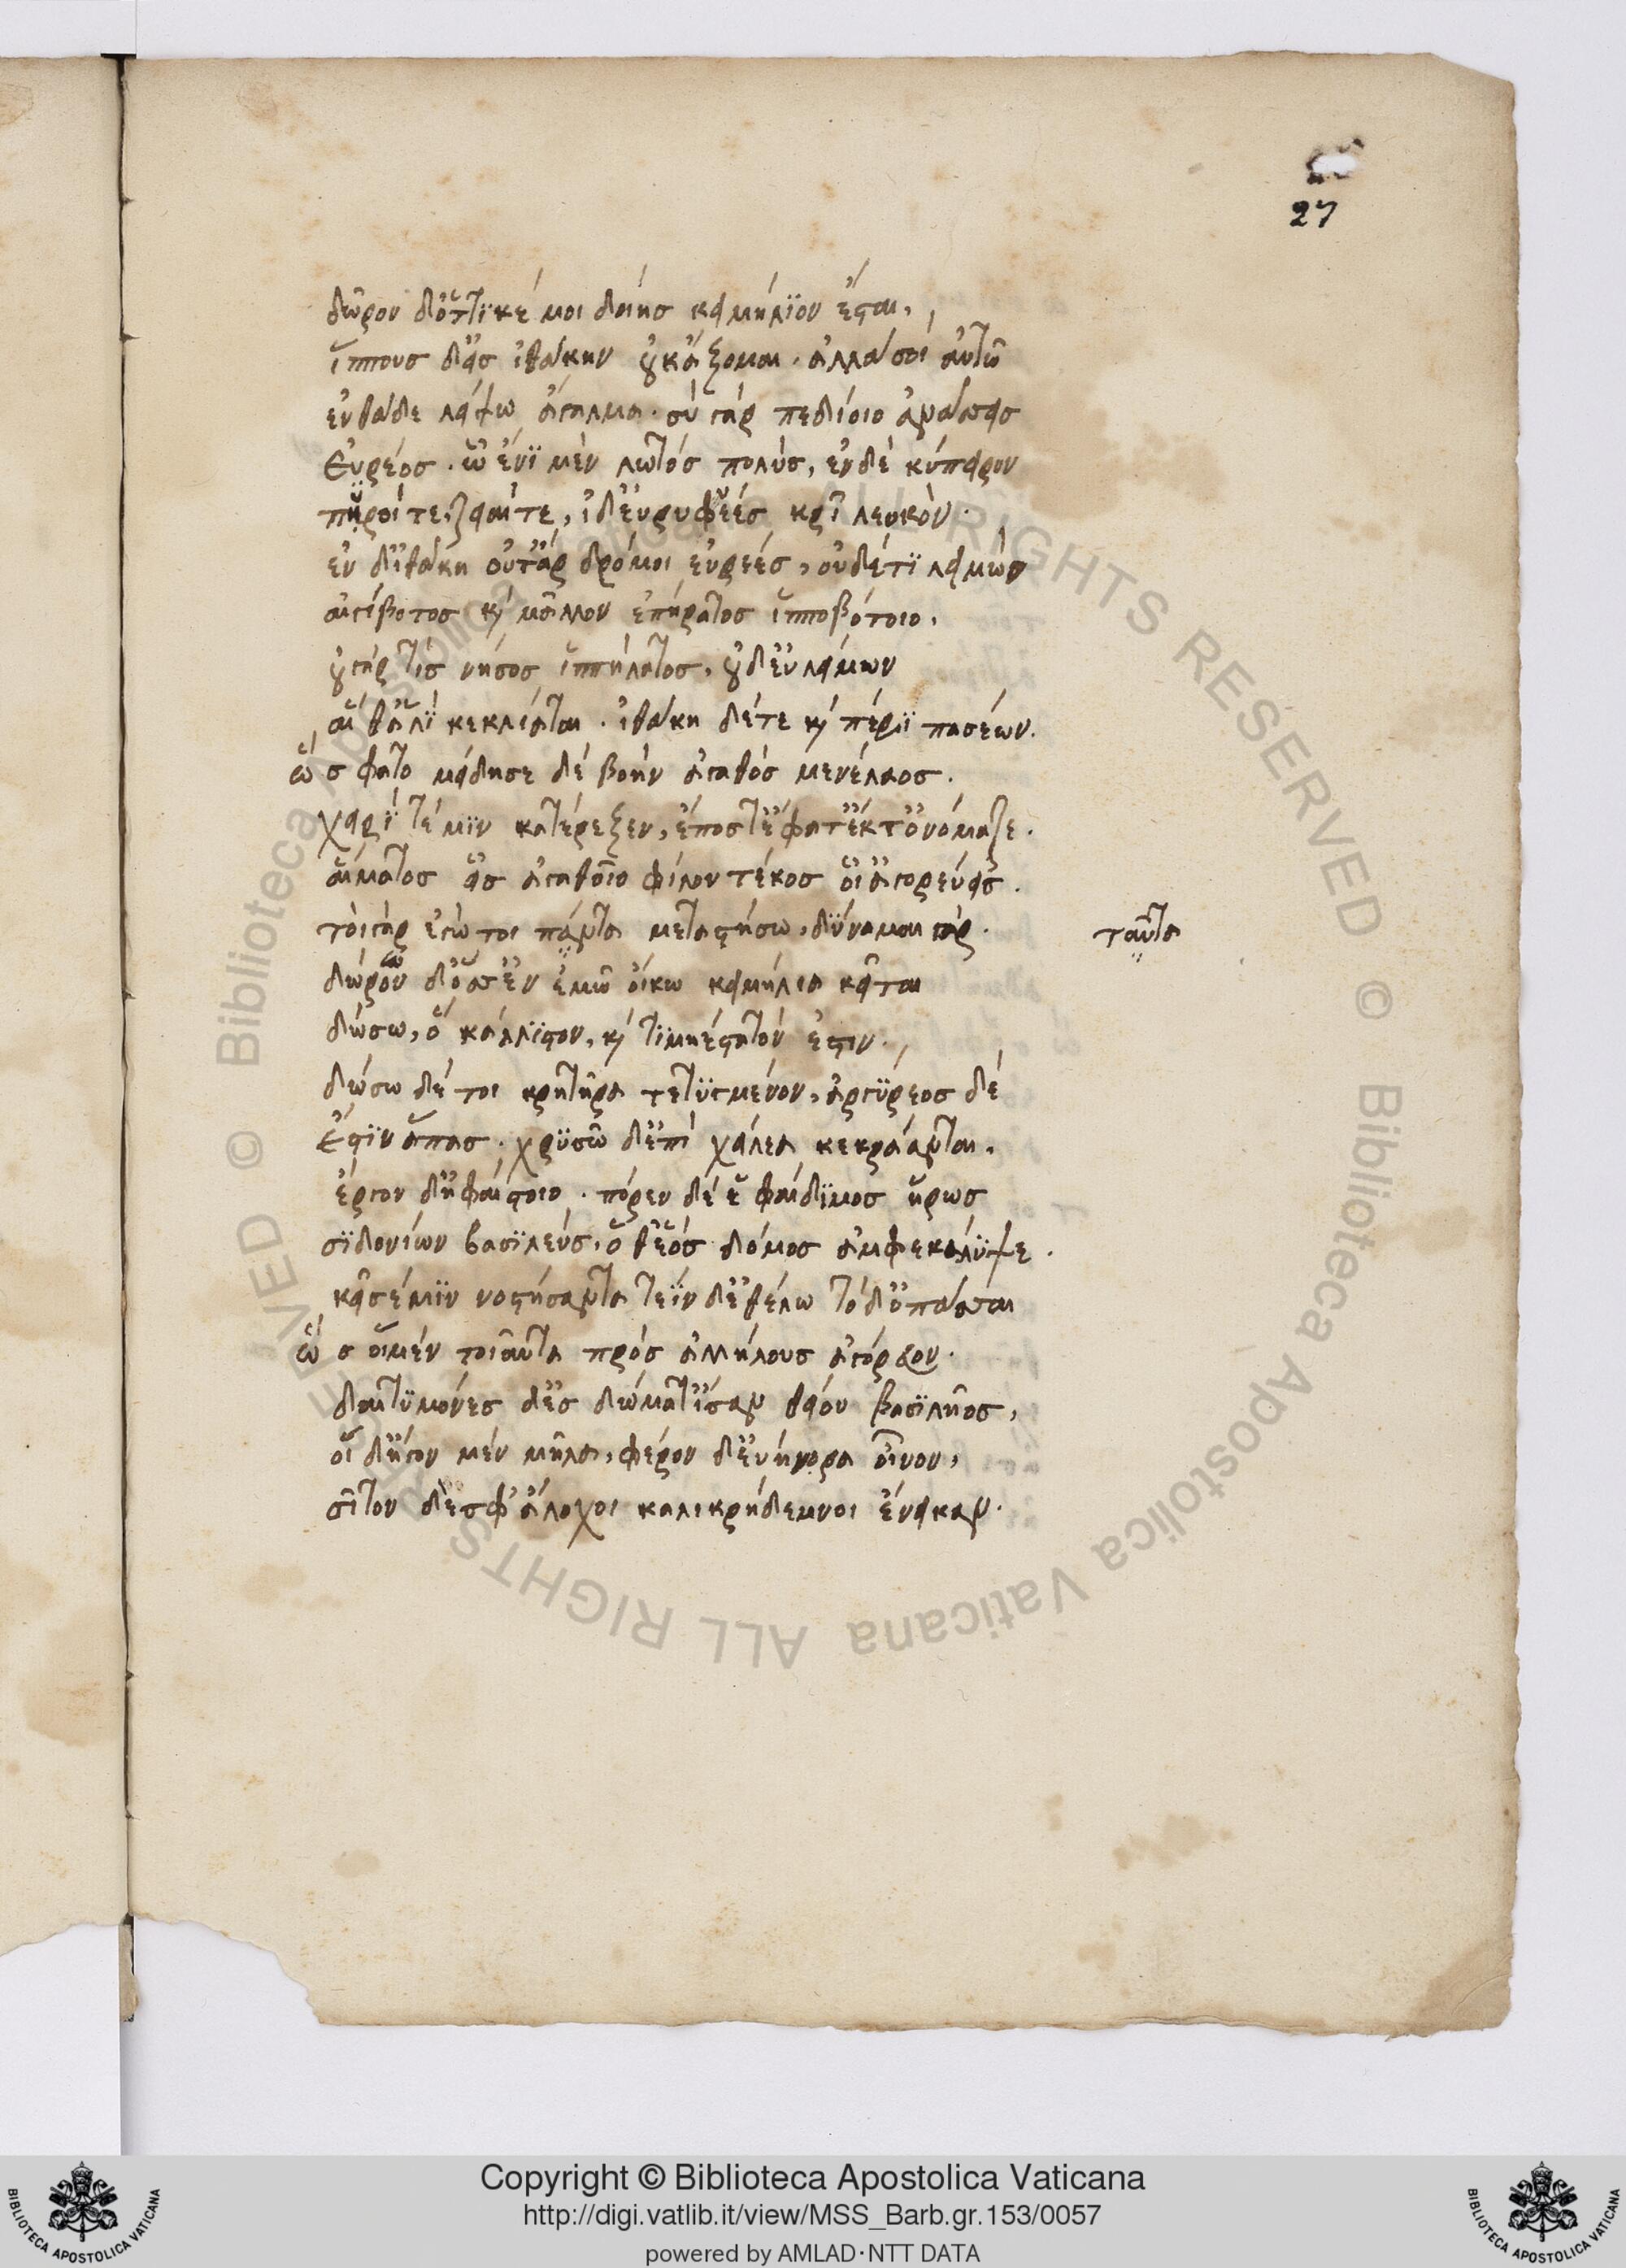 27
δῶρον δ' ὅττι κέ μοι δοίης κειμήλϊον ἔσται,
ἵππους δ' εἰς ἰθάκην οὐκ ἄξομαι. ἀλλά σοι αὐτῶ
ἐνθάδε λείψω ἄγαλμα. σὺ γάρ πεδίοιο ἀνάσσεις
εὐρέος. ὧ ἔνϊ μὲν λωτός πολύς, ἐν δὲ κύπειρον
πῦροί τε, ζειαί τε, ἰδ' εὐρυφυὲς κρῖ λευκὸν.
ἐν δ' ἰθάκη οὔτ' ἄρ δρόμοι εὐρεές, οὐδέ τϊ λειμών
αἰγίβοτος καὶ μᾶλλον ἐπήρατος ἱπποβότοιο.
οὐ γάρ τίς νήσος ἱππήλατος, οὐδ' εὐλείμων
αἵ θ' ἁλϊ κεκλίαται. ἰθάκη δέ τε καὶ πέρϊ πασέων.
ὥς φατο μείδησε δέ βοὴν ἀγαθός μενέλαος.
χειρί τέ μϊν κατέρεξεν, ἔπος τ' ἔφατ' ἔκ τ' ὀνόμαζε.
αἵματος εἰς ἀγαθοῖο φίλον τέκος οἷ' ἀγορεύεις.
τοὶ γάρ ἐγώ τοι πάντα μεταστήσω, δύναμαι γάρ.
ταῦτα
δώρων δ' ὅσσ' ἐν ἐμῶ οἴκω κειμήλια κεῖται
δώσω, ὅ κάλλϊστον, καὶ τϊμηέστατόν ἐστιν.
δώσω δέ τοι κρητῆρα τετϋγμένον, ἀργϋρεος δέ
ἔστϊν ἅπας. χρϋσῶ δ' ἐπὶ χείλεα κεκράανται.
ἔργον δ' ἡφαίστοιο. πόρεν δέ ἑ φαίδϊμος ἥρως
σϊδονίων βασϊλεύς, ὅθ' ἑός δόμος ἀμφεκάλϋψε.
κεῖσέ μϊν νοστήσαντα τεΐν δ' ἐθέλω τό δ' ὀπάσσαι
ὥς οἱ μέν τοιαῦτα πρός ἀλλήλους ἀγόρευον.
δαιτϋμόνες δ' ἐς δώματ' ἴσαν θείου βασϊλῆος,
οἵ δ' ἦγον μέν μῆλα, φέρον δ' εὐήνορα οἶνον,
σῖτον δὲ σφ' ἄλοχοι καλικρήδεμνοι ἔνεικαν.
Copyright © Biblioteca Apostolica Vaticana
http://digi.vatlib.it/view/MSS_Barb.gr.153/0057
powered by AMLAD·NTT DATA